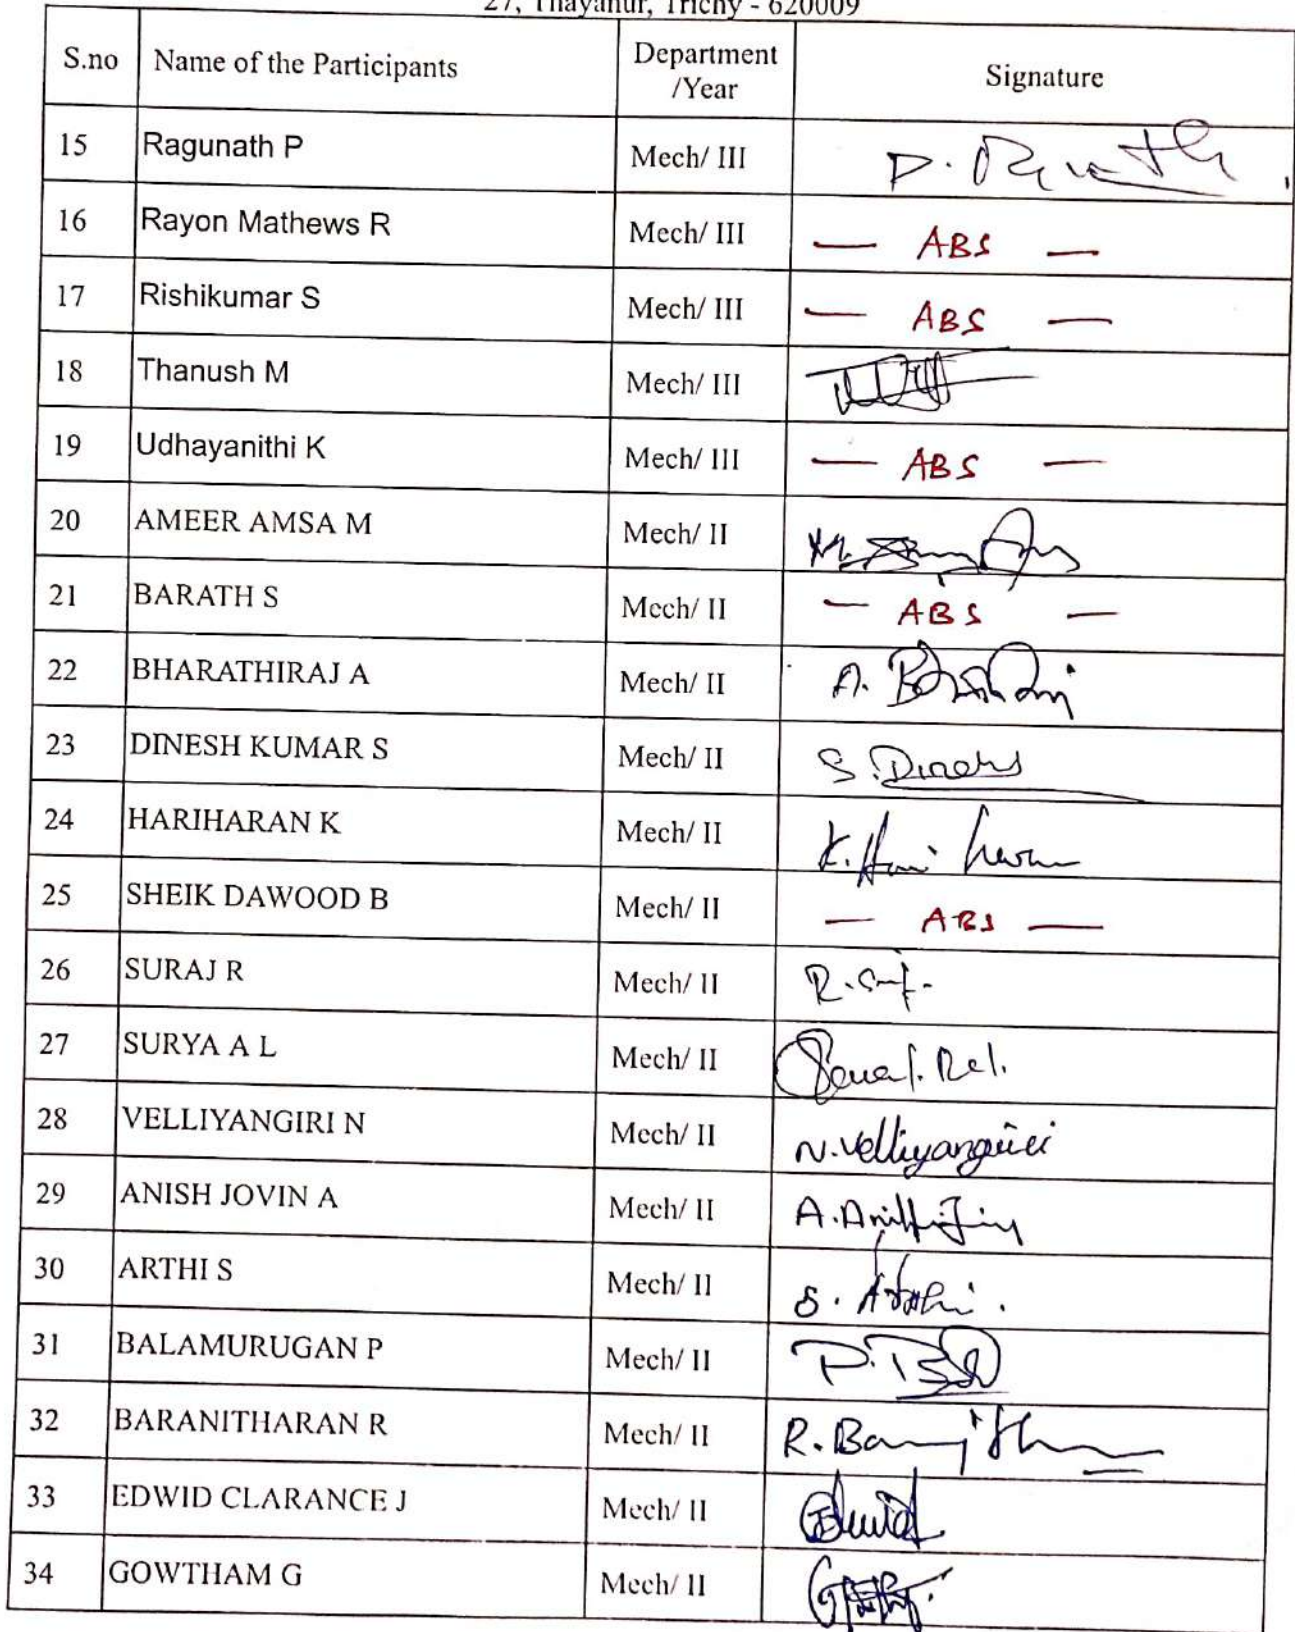 27, Thayanur, Trichy - 620009
S.no Name of the Participants Department /Year Signature
15 Ragunath P Mech/ III
16 Rayon Mathews R Mech/ III — ABS —
17 Rishikumar S Mech/ III — ABS —
18 Thanush M Mech/ III
19 Udhayanithi K Mech/ III — ABS —
20 AMEER AMSA M Mech/ II
21 BARATH S Mech/ II — ABS —
22 BHARATHIRAJ A Mech/ II
23 DINESH KUMAR S Mech/ II S. Dinesh
24 HARIHARAN K Mech/ II K. Hari haran
25 SHEIK DAWOOD B Mech/ II — ABS —
26 SURAJ R Mech/ II
27 SURYA A L Mech/ II
28 VELLIYANGIRI N Mech/ II N. Velliyangiri
29 ANISH JOVIN A Mech/ II
30 ARTHI S Mech/ II
31 BALAMURUGAN P Mech/ II
32 BARANITHARAN R Mech/ II
33 EDWID CLARANCE J Mech/ II
34 GOWTHAM G Mech/ II